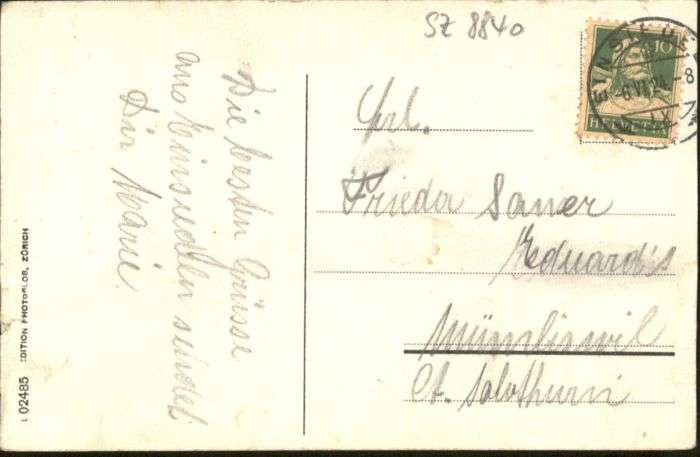 SZ 8840
Die besten Grüsse
aus Einsiedeln sendet
Dir Marie.
10
HELVETIA
EINSIEDELN
Frl.
Frieda Saner
Eduard's
Mümliswil
Ct. Solothurn
02485 EDITION PHOTOGLOB, ZÜRICH